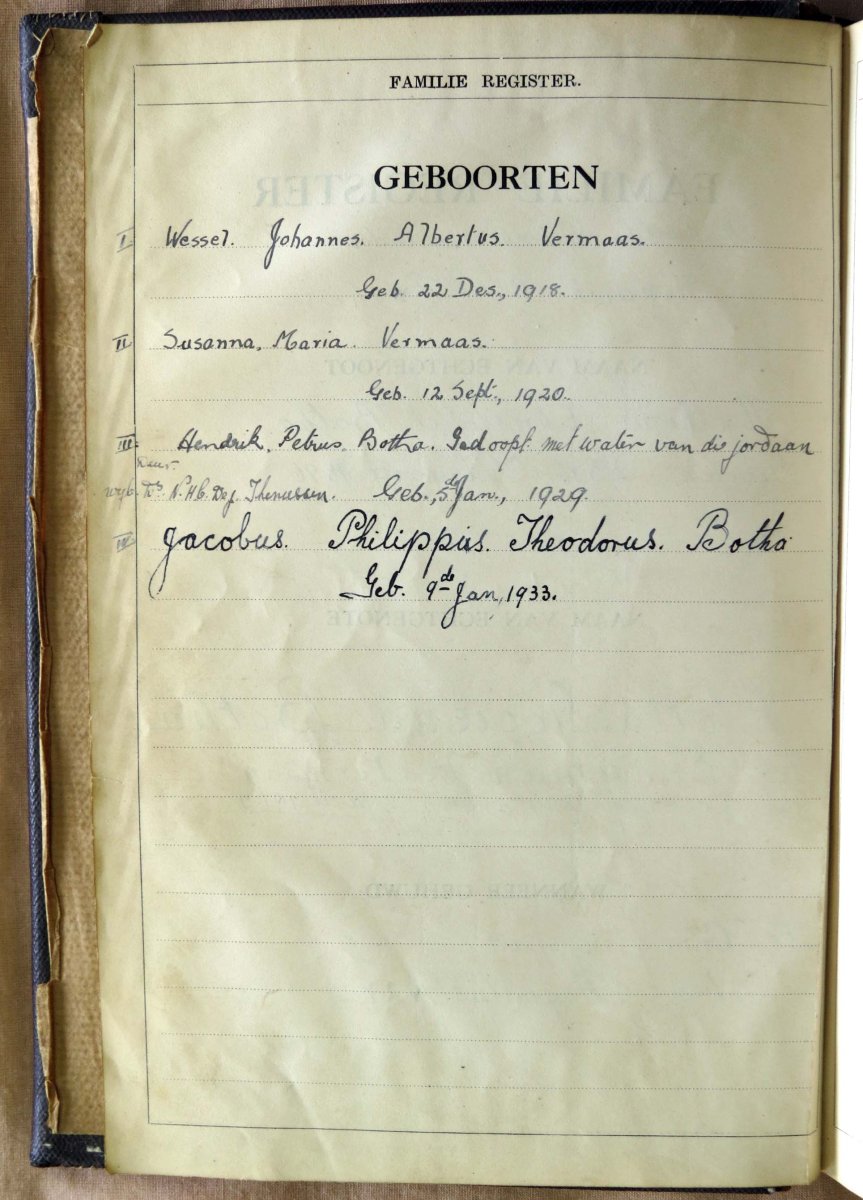 FAMILIE REGISTER.
GEBOORTEN
I Wessel. Johannes. Albertus. Vermaas.
Geb. 22 Des., 1918.
II Susanna. Maria. Vermaas.
Geb. 12 Sept., 1920.
III Hendrik. Petrus. Botha. Gedoopt met water van die jordaan
deur Ds N.H.G. Geb., 5de Jan., 1929.
IV Jacobus. Philippus. Theodorus. Botha
Geb. 9de Jan, 1933.